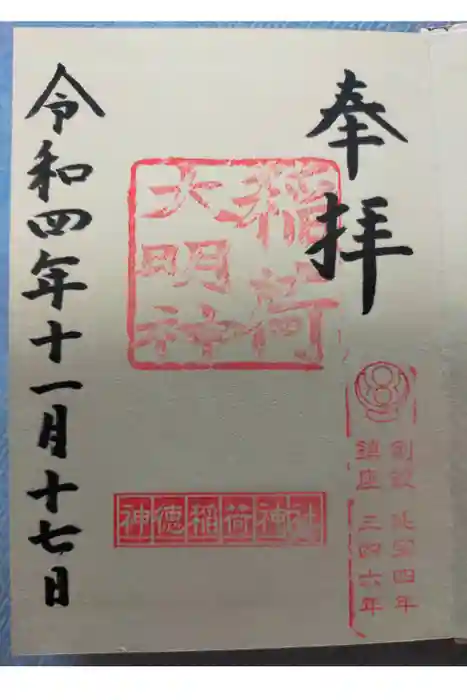 奉拝
稲荷
大明神
創設 延宝四年
鎮座 三四六年
神徳稲荷神社
令和四年十一月十七日